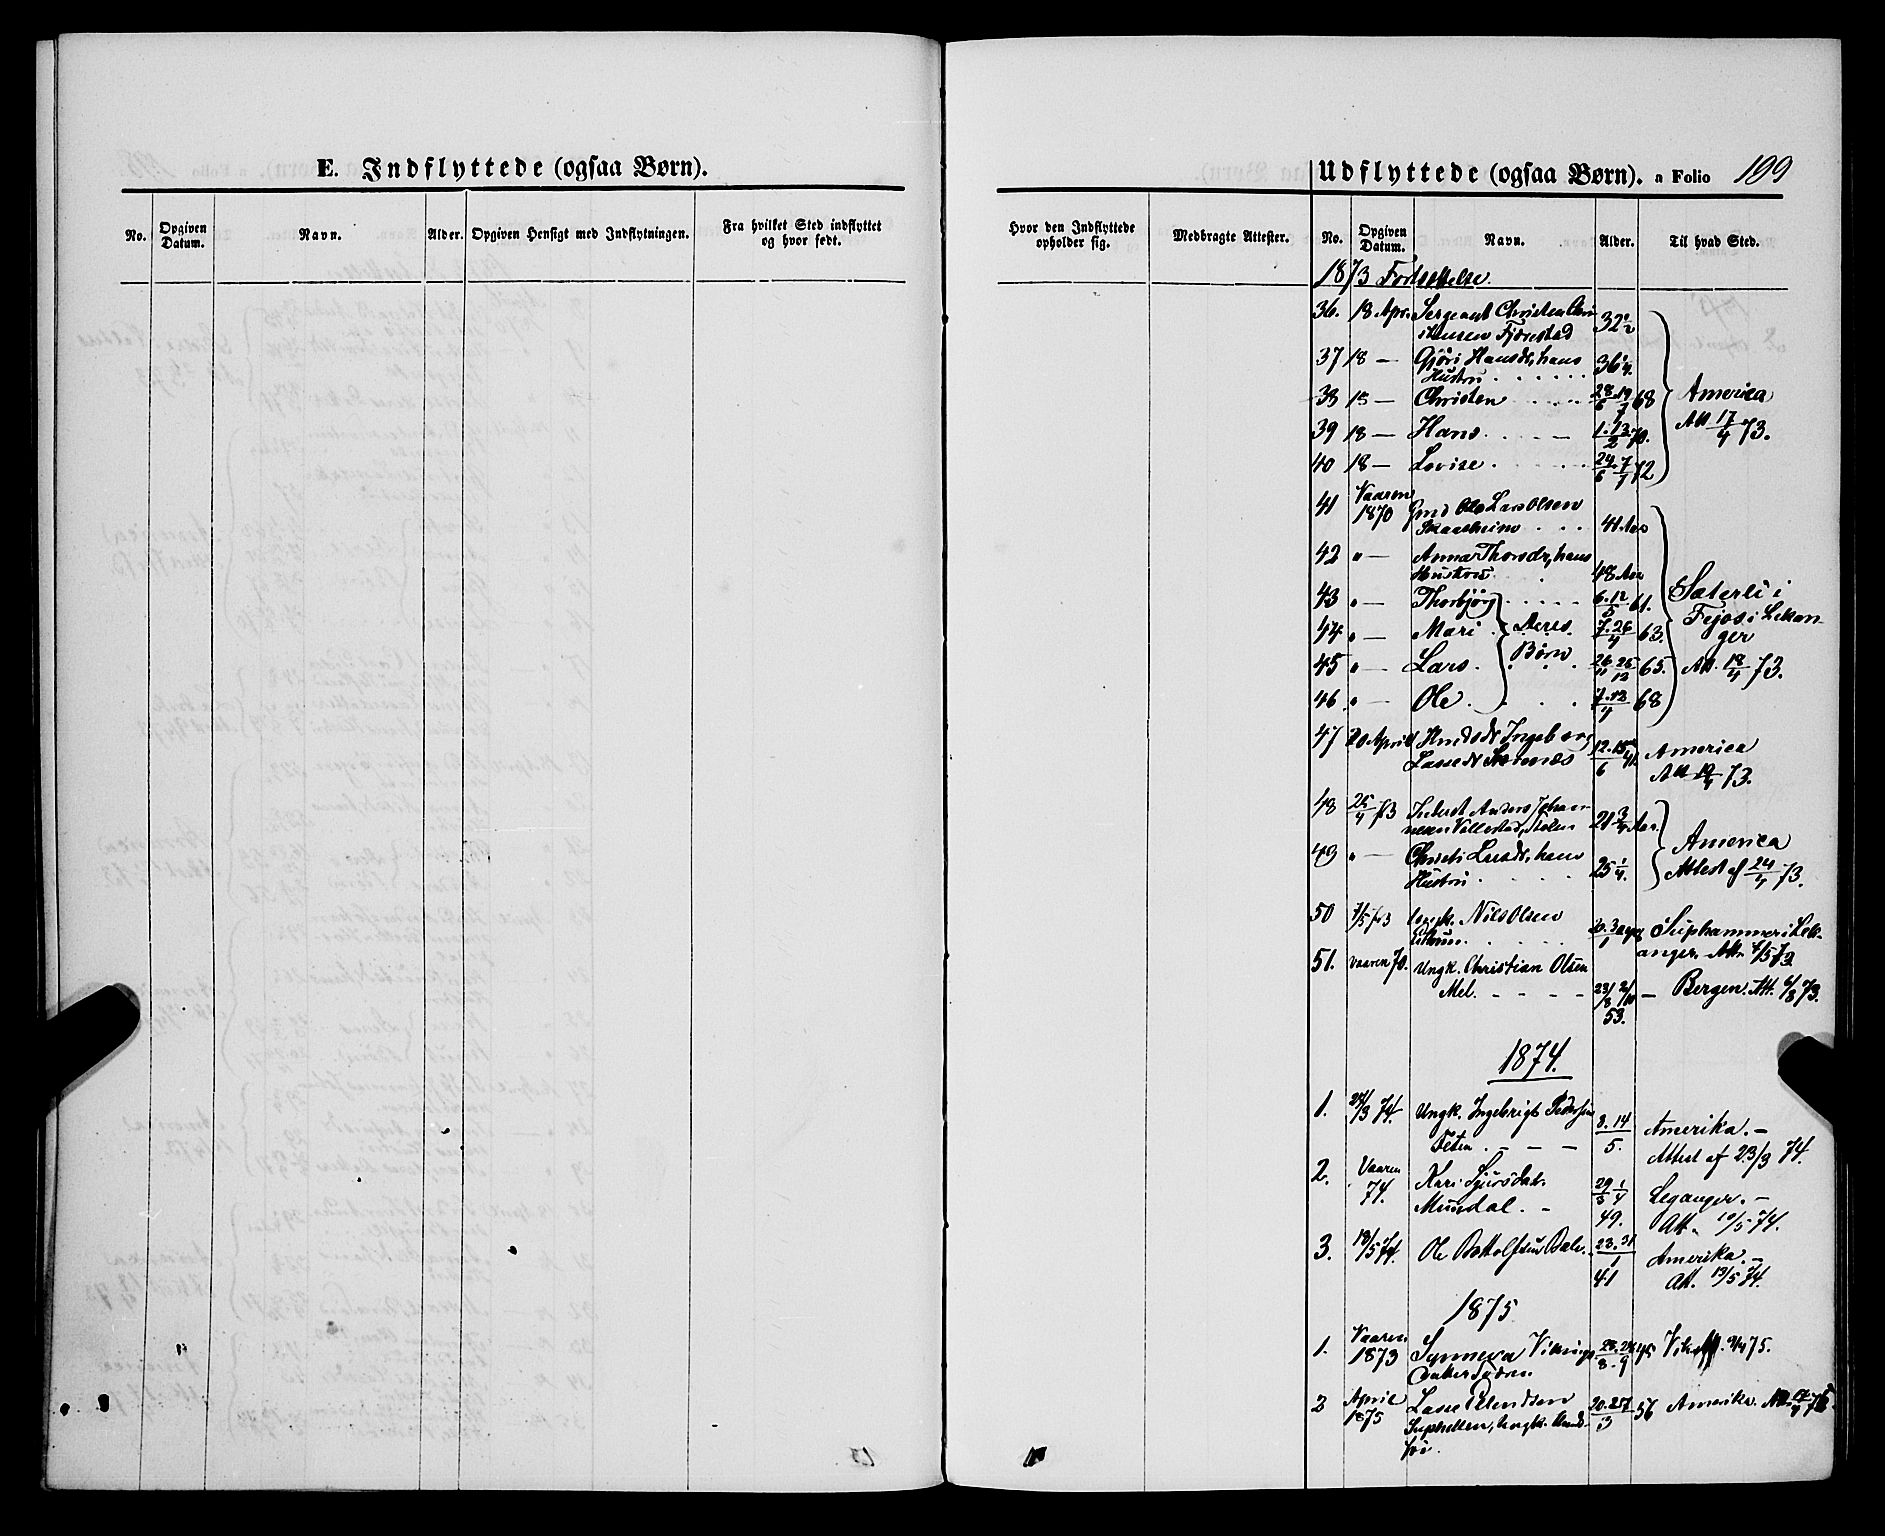 E. Indflyttede (ogsaa Børn).
No.
Opgiven Datum.
Navn.
Alder.
Opgiven Hensigt med Indflytningen.
Fra hvilket Sted indflyttet og hvor født.
Udflyttede (ogsaa Børn). a Folio 199
Hvor den Indflyttede opholder sig.
Medbragte Attester.
No.
Opgiven Datum.
Navn.
Alder.
Til hvad Sted.
1873 Fortsættelse.
36. 18 Apr. Sergeant Christen Chri
stensen Fjærestad 32 1/2
37 18 — Gjøri Hansdr, hans
Hustru 36 1/4
38 18 — Christen 28/6 19/7 68 America
39 18 — Hans 1.13/2 70. Att 17/4 73.
40 18 — Lovise 24/6 7/7 72
41 Vaaren
1870 Gmd Ole Larsen Olsen
41 Aar
42 " — Anna Thorsdr, hans
Hustru 48 Aar
43 " — Thorbjørg 6.12/5 61. Sæterli i
44 " — Mari Deres 7.26/4 63. Fejos i Lekan-
ger
45 " — Lars Børn 26/11 26/12 65. Att. 18/4 73.
46 " — Ole 7.12/4 68
47 20 April Ingeborg
Lassedr 12.15/6 41. America
Att 19/4 73.
48 25/4 73 Anders Johan-
nesen 21 3/4 Aar America
49 " — Christi hans
Hustru 25 1/4. Attest af 24/4 73.
50 7/5 73 Ungk. Nils Olsen
Suphammer i Lek-
anger. Att. 4/5 73
51. Vaaren 70. Ungk. Christian Olsen
Mel. 23/8 2/10 — Bergen. Att. 6/8 73.
53.
1874.
1. 24/3 74. Ungk. Ingebrigt Pedersen
Feten 8.14/5. Amerika. —
Attest af 23/3 74.
2. Vaaren
74. Kari Sjursdatr.
Mundal. 29/3 1/4 49. Leganger. —
Att. 10/5 74.
3. 13/5 74. Ole Botholfsen Bale. 23.31/1 41 Amerika. —
Att. 13/5 74.
1875
1. Vaaren
1873 Synneva Vikings-
datter 45 Vik 75.
2 April
1875 Lasse Erlendsen
Suphellen, Ungk. 20.25/3 56 Amerika.